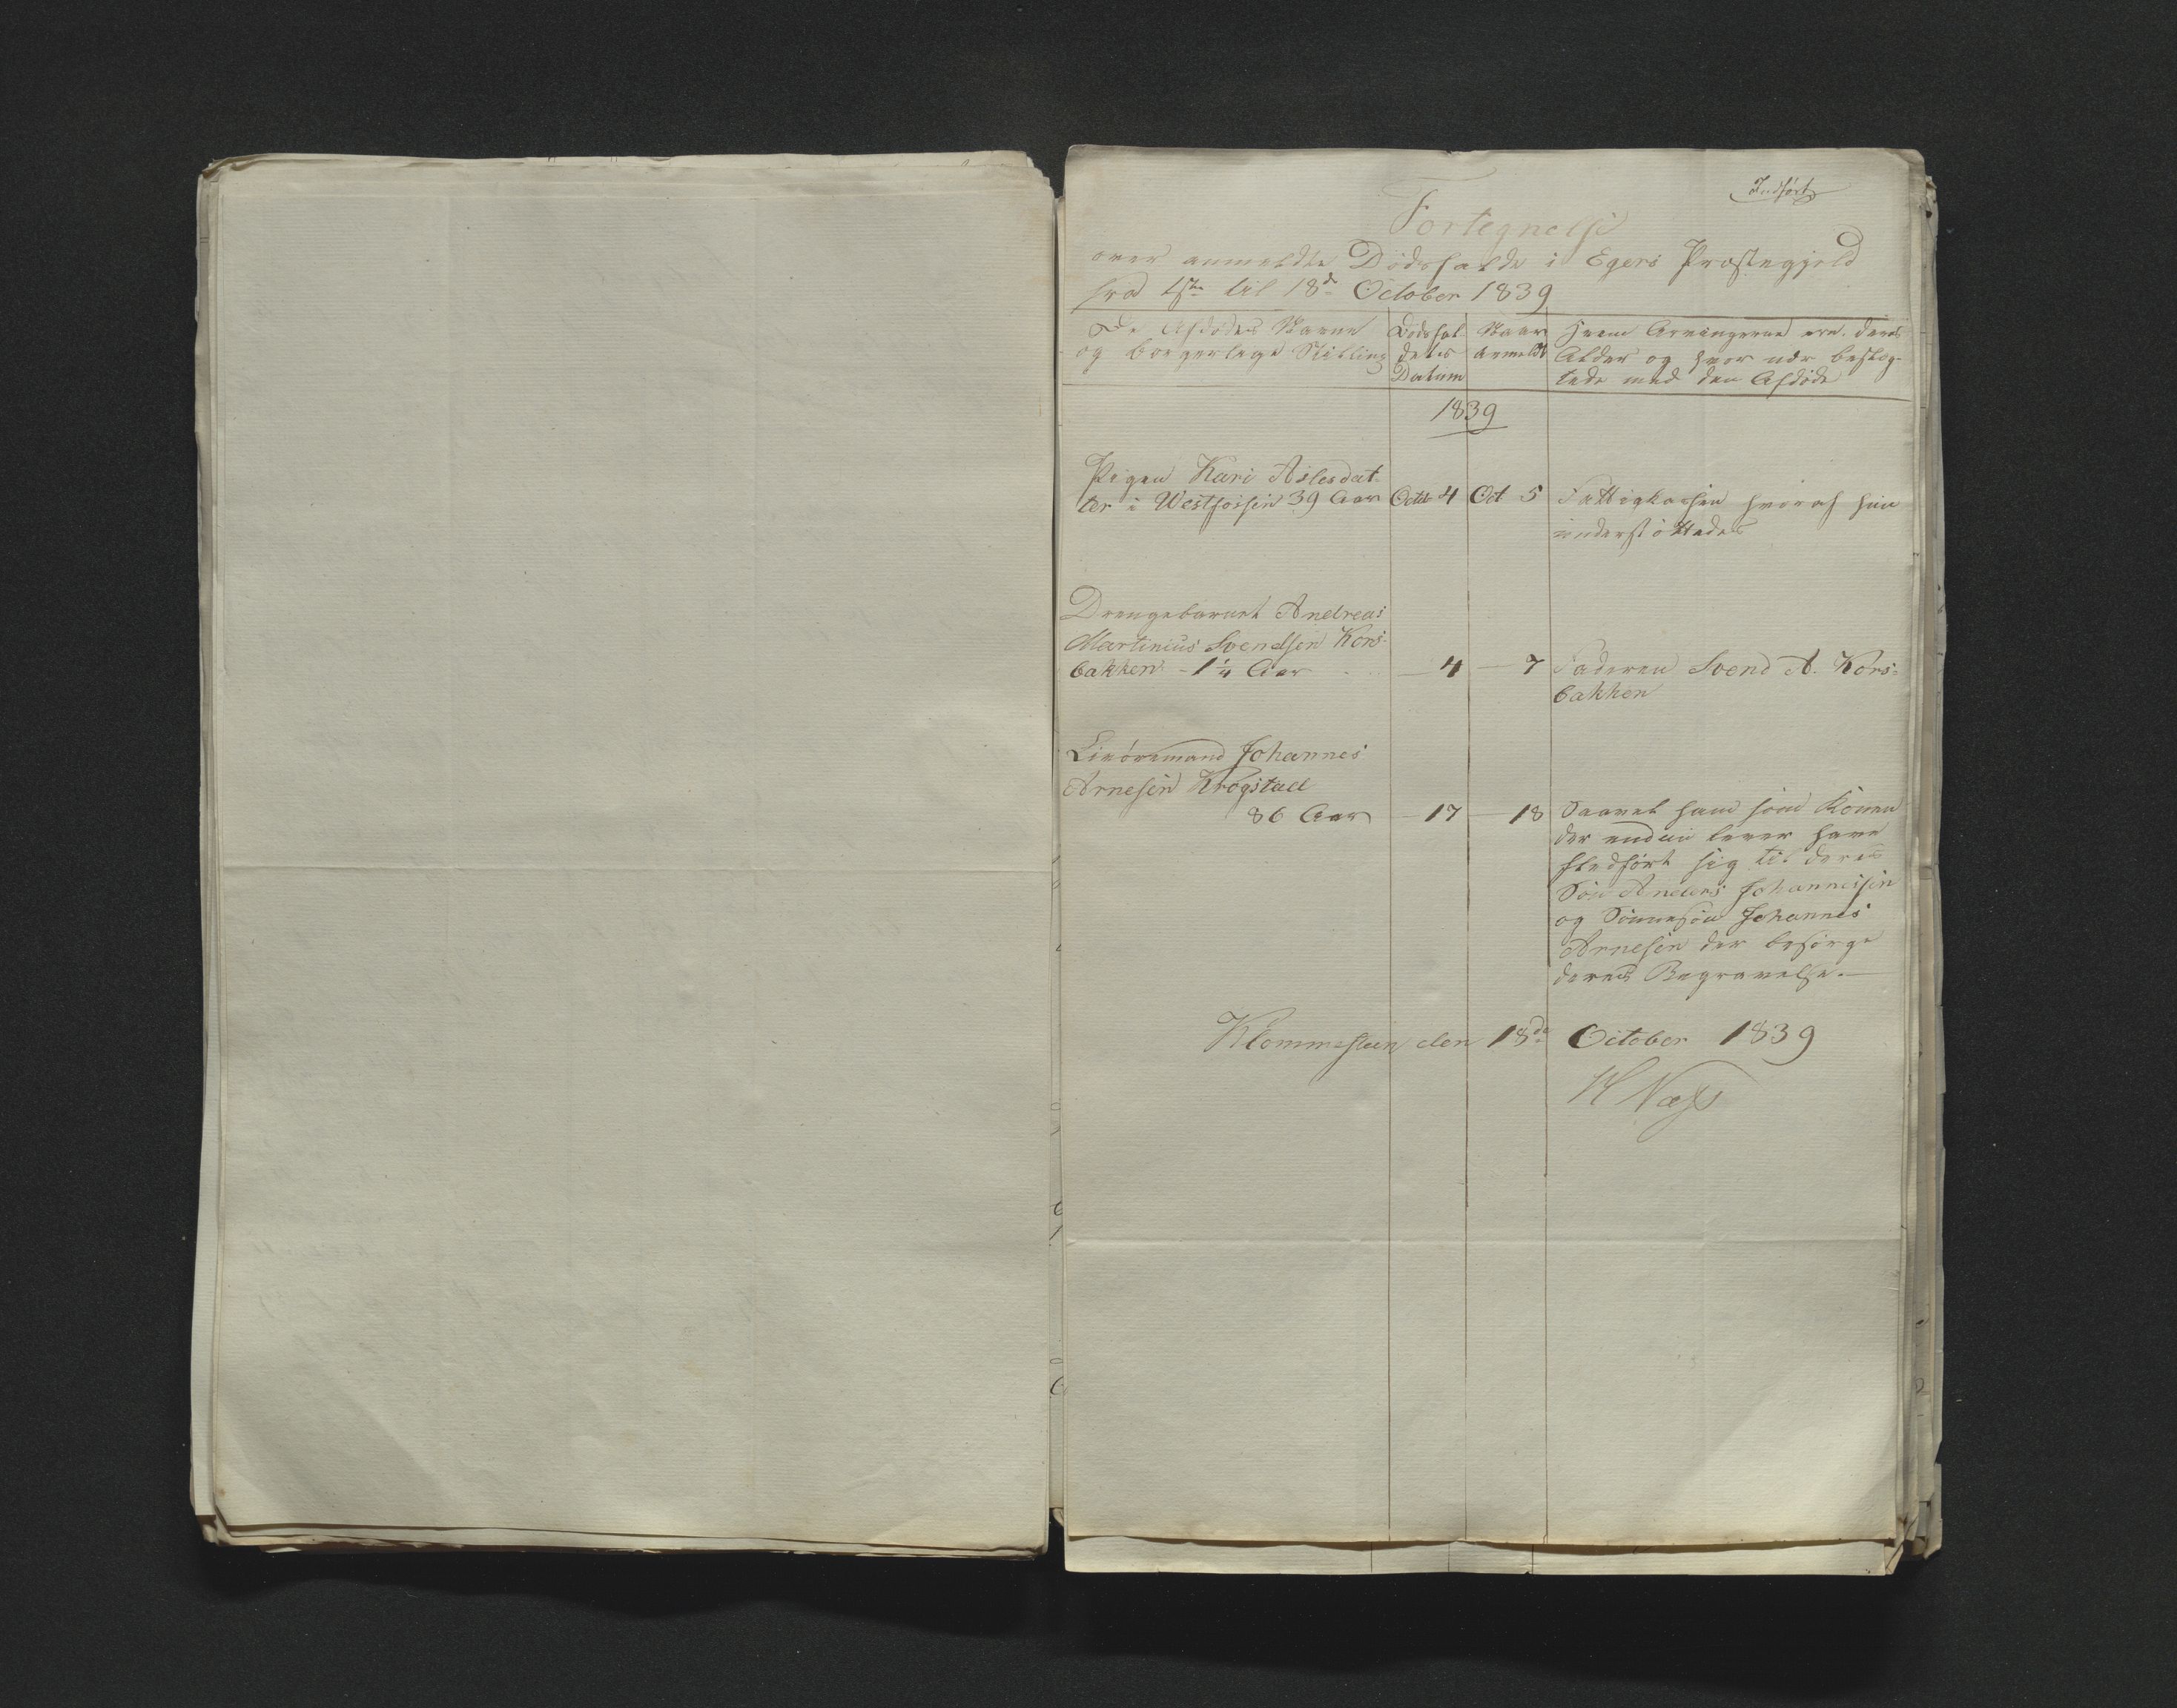 Indført
Fortegnelse
over anmeldte Dødsfalde i Egers Præstegjeld
fra 1ste til 18de October 1839
De Afdødes Navne
og borgerlige Stilling
Dødsfal-
dets
Datum
Naar
anmeldt
Hvem Arvingerne ere, deres
Alder og hvor nær beslæg-
tede med den Afdøde
1839
Pigen Kari Aslesdat-
ter i Westfossen 39 Aar Octbr 4 Oct 5 Fattigkassen hvoraf hun
understøttedes
Drengebarnet Andreas
Martinius Svendsen Kors-
bakken - 1 1/4 Aar — 4 — 7 Faderen Svend A. Kors-
bakken
Livøremand Johannes
Arnesen Krogstad
86 Aar — 17 — 18 Saavel ham som Konen
der endnu lever have
fledført sig til deres
Søn Anders Johannessen
og Sønnesøn Johannes
Arnesen der besørge
deres Begravelse. —
Klommesteen den 18de October 1839
H Næss